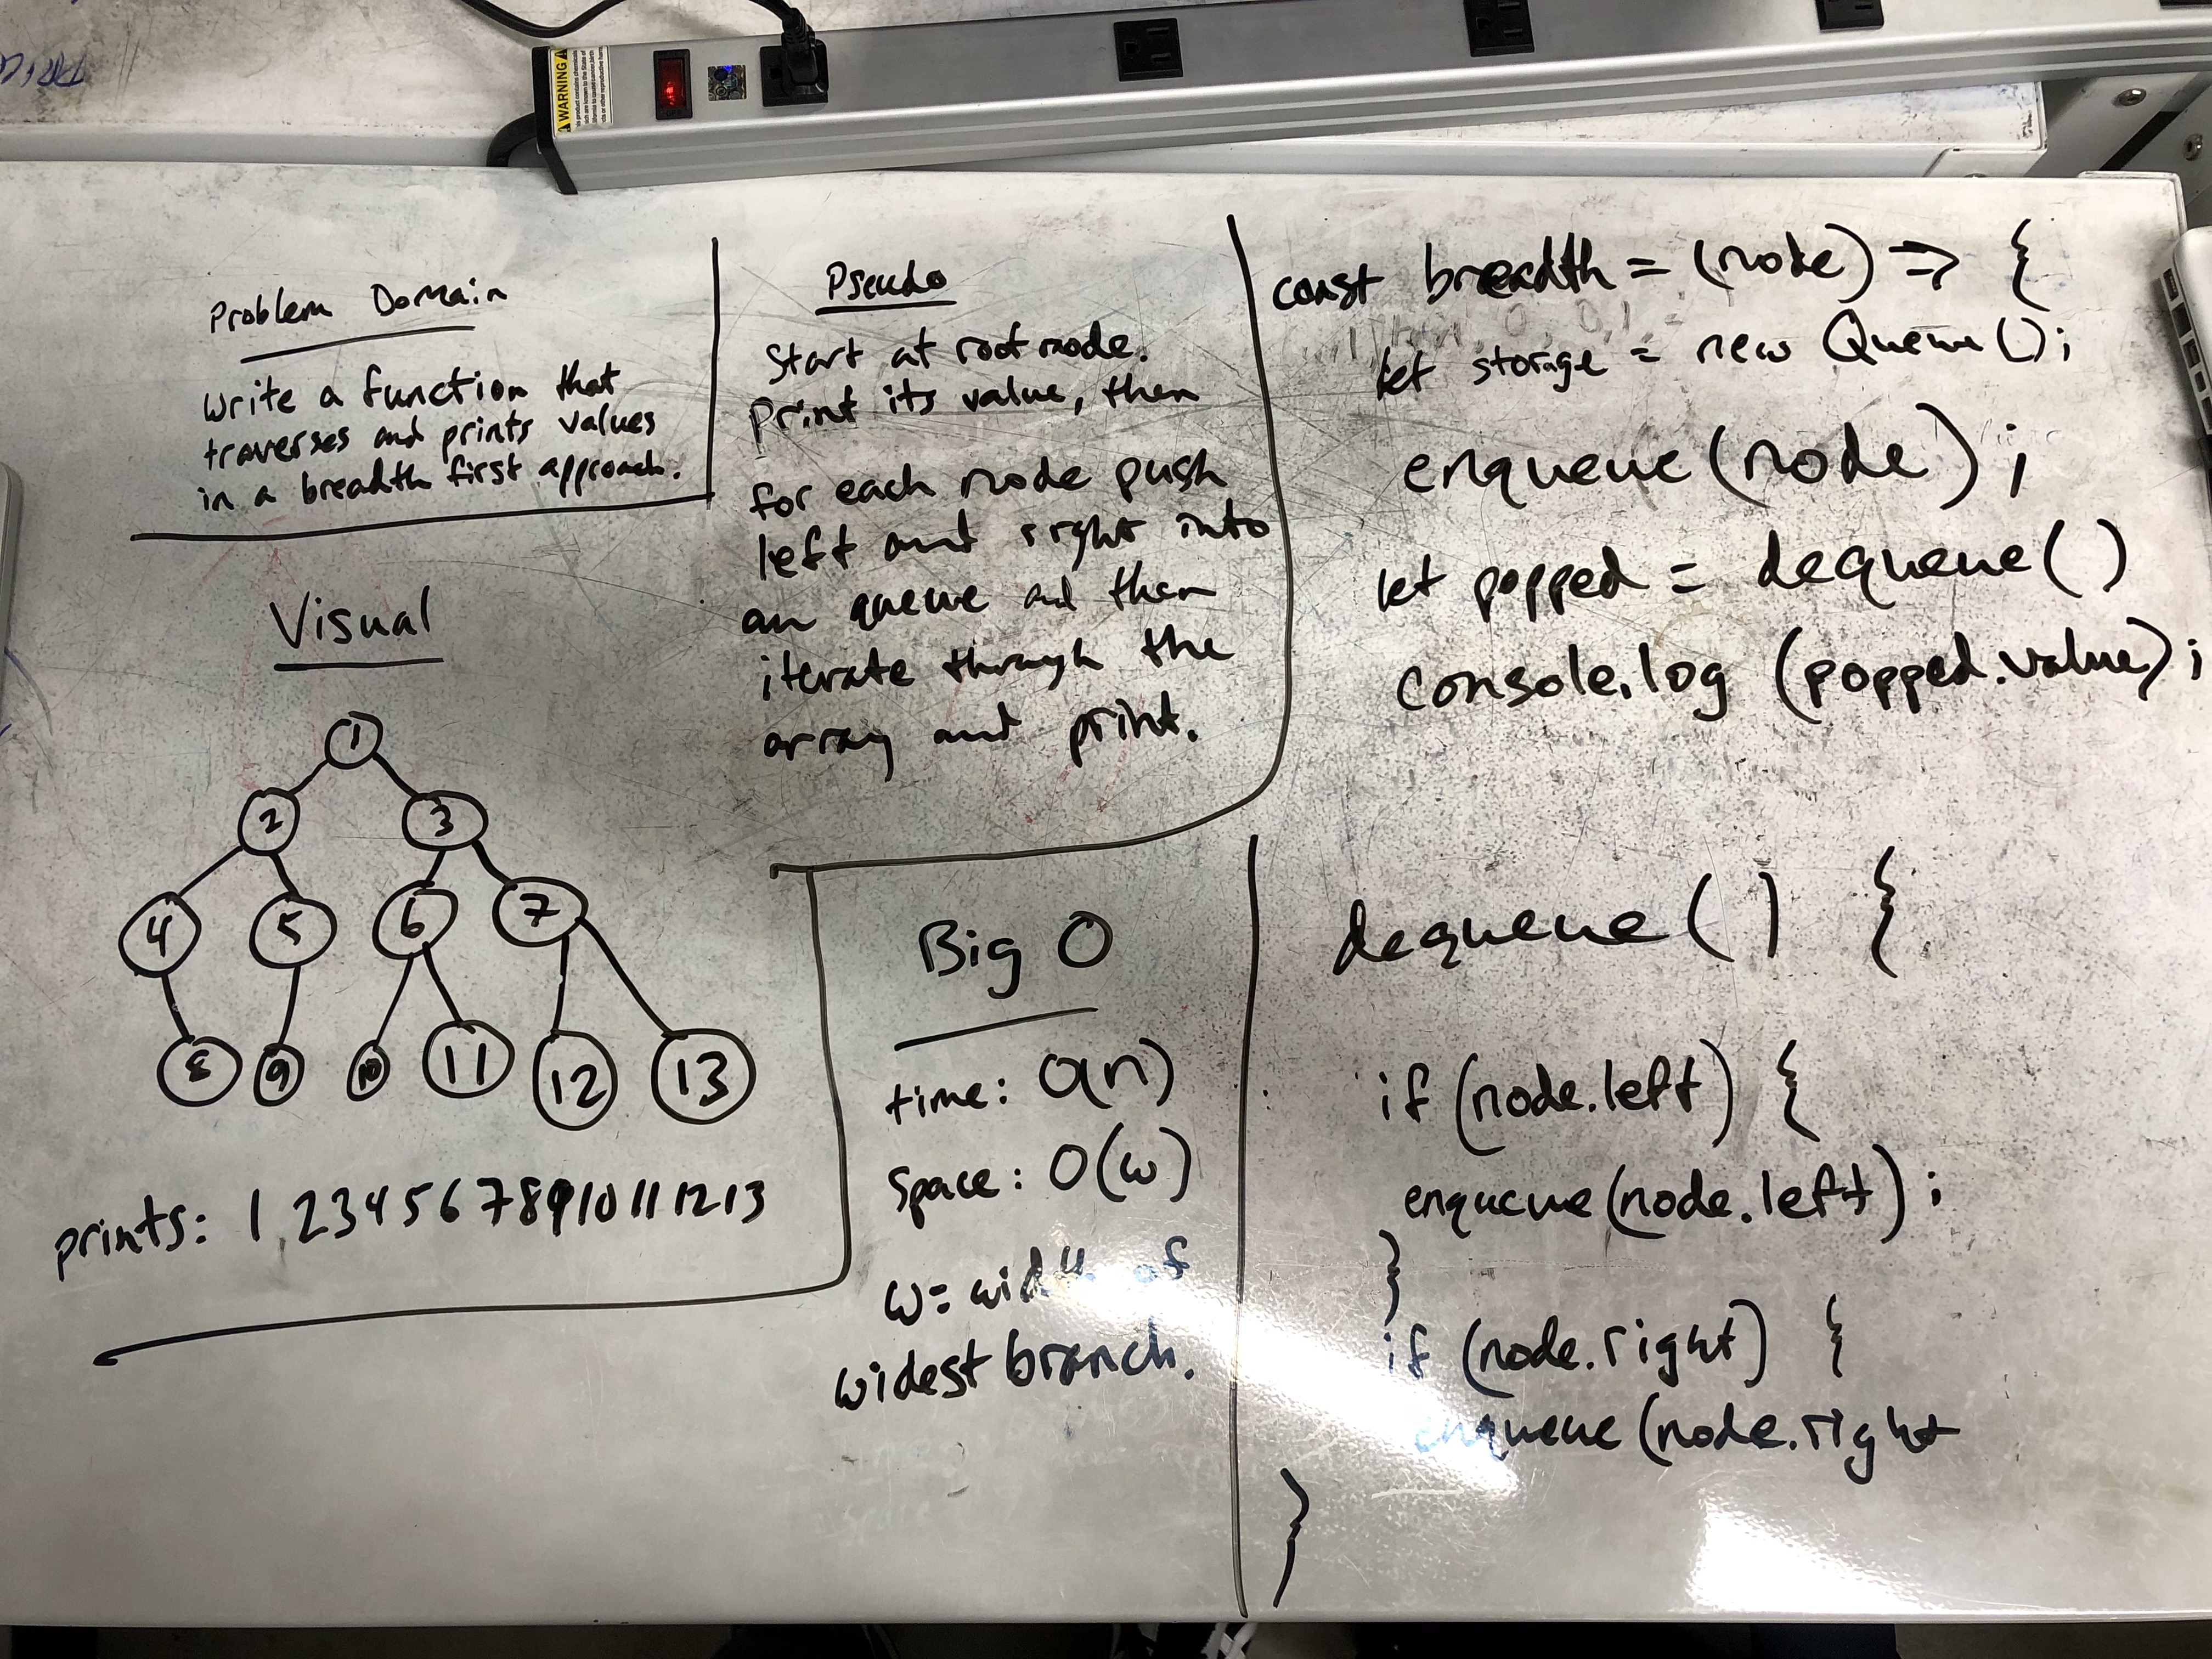 WARNING
Problem Domain
write a function that
traverses and prints values
in a breadth first approach.
Visual
1
2 3
4 5 6 7
8 9 10 11 12 13
prints: 1 2 3 4 5 6 7 8 9 10 11 12 13
Pseudo
Start at root node.
Print its value, then
for each node push
left and right into
an queue and then
iterate through the
array and print.
Big O
time: O(n)
space: O(w)
w= width of
widest branch.
const breadth = (node) => {
let storage = new Queue();
enqueue(node);
let popped = dequeue()
console.log (popped.value);
dequeue() {
if (node.left) {
enqueue(node.left);
}
if (node.right) {
enqueue(node.right
}